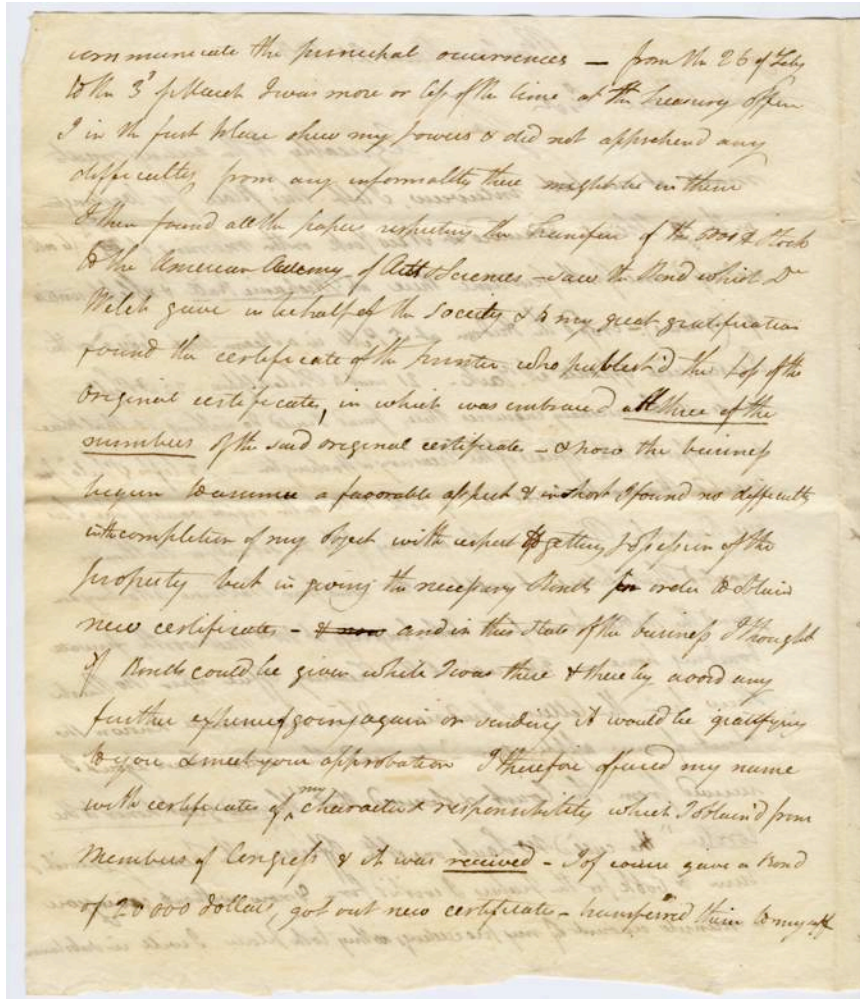 communicate the principal occurrences — from the 26 of Feby
to the 3d of March I was more or less of the time at the Treasury office
I in the first place shew my powers & did not apprehend any
difficulty from any informality there might be in them
I then found all the papers respecting the transfer of the Stock
to the American Academy of Arts & Sciences – saw the Bond which Dr
Welch gave in behalf of the Society & to my great gratification
found the certificate of the printer who publish'd the loss of the
original certificates, in which was embraced all three of the
numbers of the said original certificates – & now the business
began to assume a favorable aspect & in short I found no difficulty
in the completion of my object with respect to getting possession of the
property but in giving the necessary Bonds in order to obtain
new certificates – & now and in this state of the business I thought
if Bonds could be given while I was there & thereby avoid any
further expense of going again or sending it would be gratifying
to you & meet your approbation I therefore offered my name
with certificates of my character & responsibility which I obtain'd from
Members of Congress & it was received – I of course gave a Bond
of 20000 dollars, got out new certificates – transferred them to myself